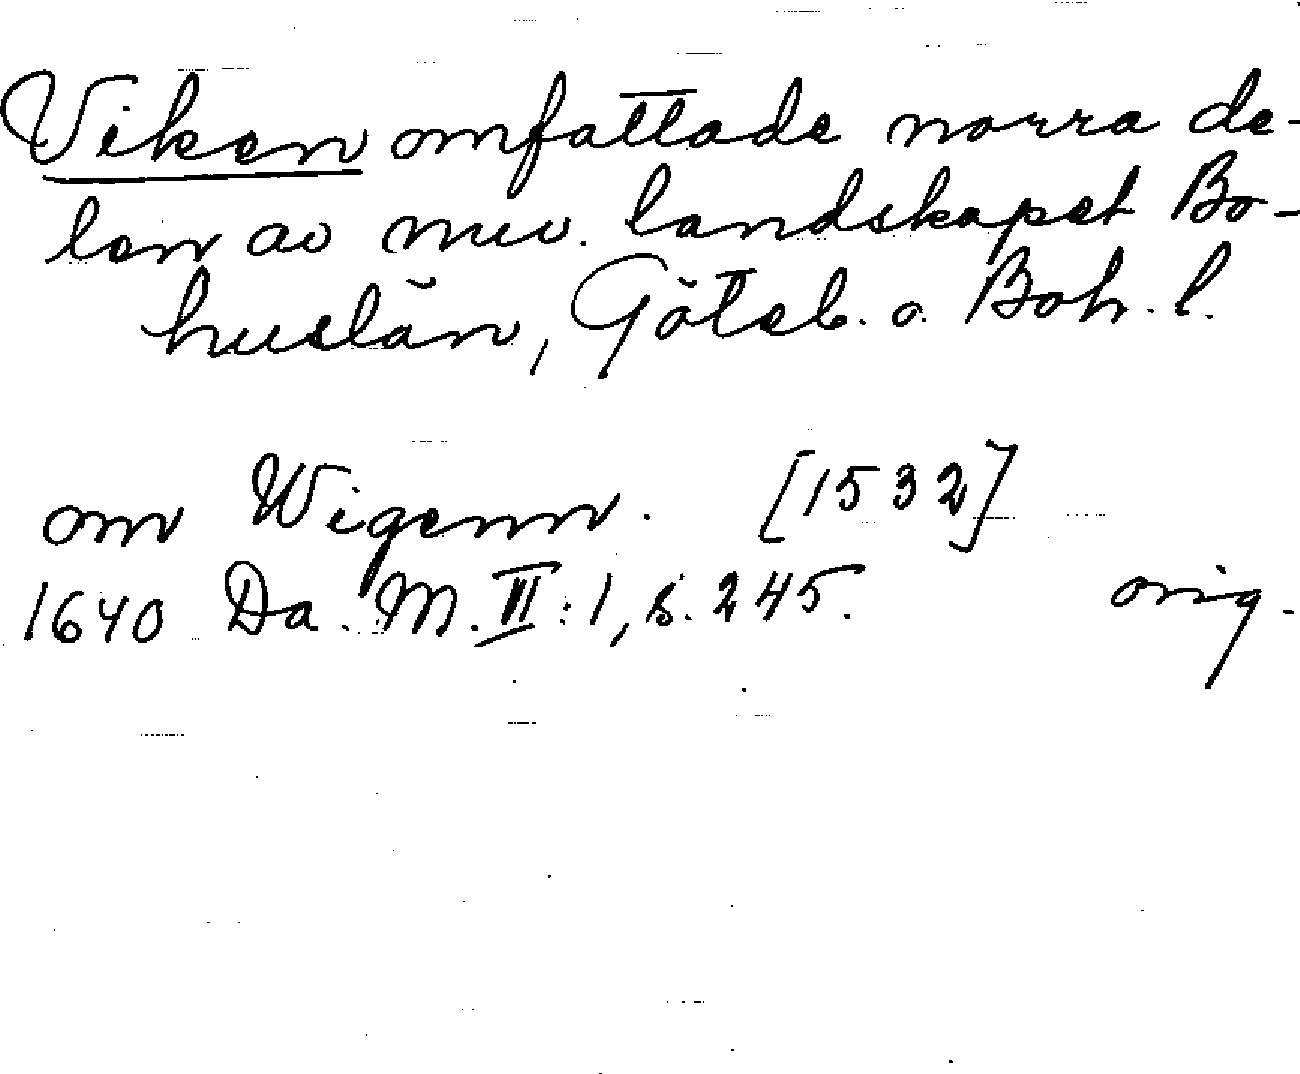 Viken omfattade norra de-
len av nuv. landskapet Bo-
huslän, Göteb. o. Boh. l.
om Wigenn. [1532]
1640 Da. M. VI:1, s. 245. orig.